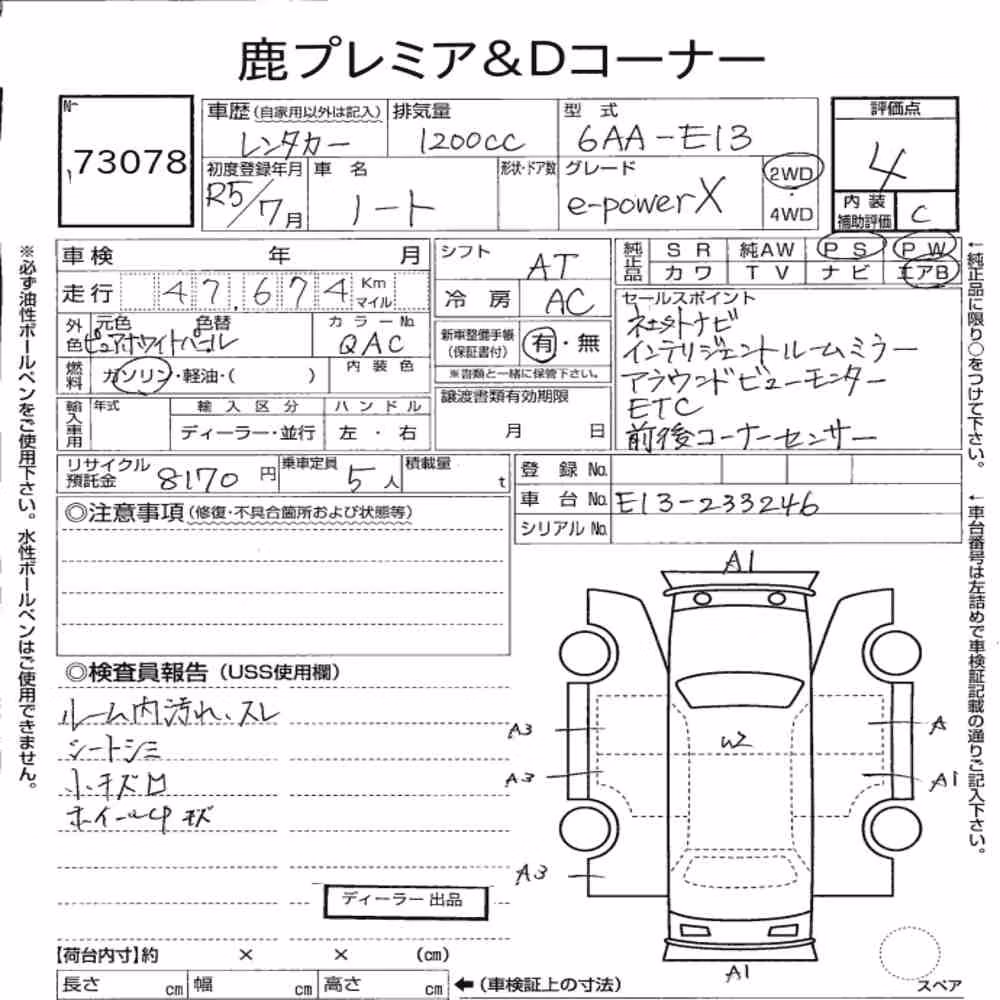 鹿プレミア&Dコーナー
No. 73078
車歴(自家用以外は記入) レンタカー
排気量 1200cc
型式 6AA-E13
評価点 4
初度登録年月 R5/7月
車名 ノート
形状・ドア数
グレード e-powerX
2WD・4WD
内装補助評価 C
車検 年 月
走行 47,674 Km マイル
シフト AT
冷房 AC
純正品 SR 純AW PS PW
カワ TV ナビ エアB
外色 元色 色替 ピュアホワイトパール
カラーNo. QAC
新車整備手帳(保証書付) 有・無
※書類と一緒に保管下さい。
燃料 ガソリン・軽油・( )
内装色
譲渡書類有効期限 月 日
輸入車用 年式 輸入区分 ハンドル
ディーラー・並行 左・右
セールスポイント
ネオタトナビ
インテリジェントルームミラー
アラウンドビューモニター
ETC
前後コーナーセンサー
リサイクル預託金 8170円
乗車定員 5人
積載量 t
登録No.
車台No. E13-233246
シリアルNo.
◎注意事項(修復・不具合箇所および状態等)
◎検査員報告(USS使用欄)
ルーム内汚れ、スレ
シートシミ
小キズ凹
ホイールCPキズ
ディーラー出品
A1
A3
A
W2
A3
A1
A3
A1
スペア
【荷台内寸】約 × × (cm)
長さ cm 幅 cm 高さ cm ←(車検証上の寸法)
※必ず油性ボールペンをご使用下さい。水性ボールペンはご使用できません。
←純正品に限り○をつけて下さい。
←車台番号は左詰めで車検証記載の通りご記入下さい。